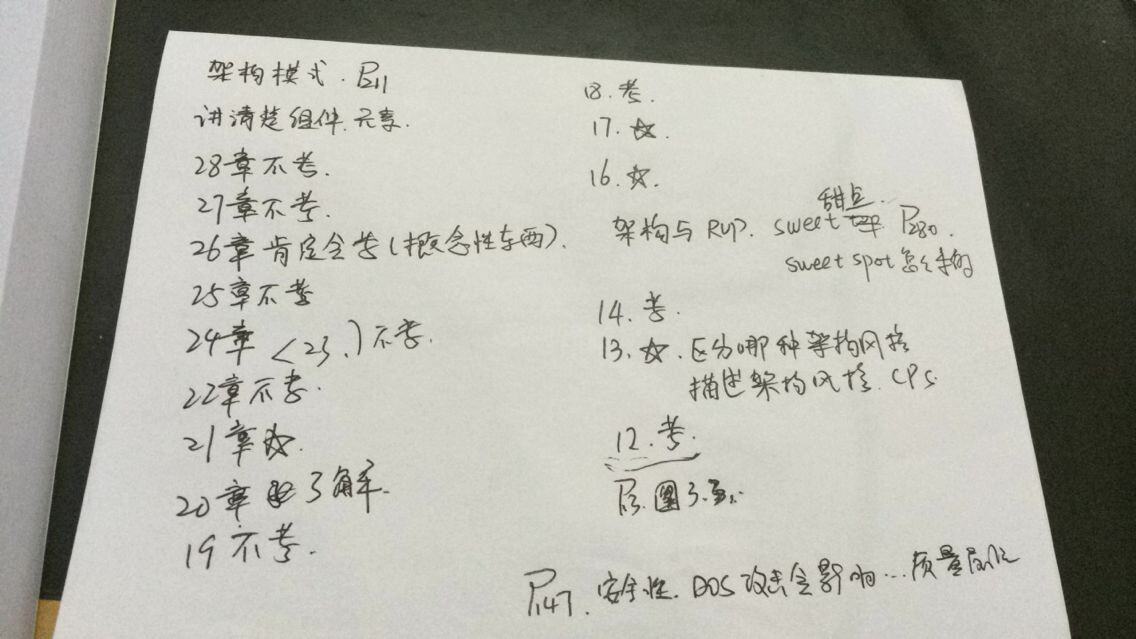 架构模式. P211
讲清楚组件.元素.
28章不考.
27章不考.
26章肯定会考(概念性东西).
25章不考
24章<23.)不考.
22章不考.
21章☆.
20章 了解.
19不考.
18.考.
17.☆.
16.☆.
甜点.
架构与RUP. sweet P280.
sweet spot怎么构
14.考.
13.☆.区分哪种架构风格
描述架构风格.CPS
12.考.
图3.
P147.安全性.DOS攻击会影响…质量属性